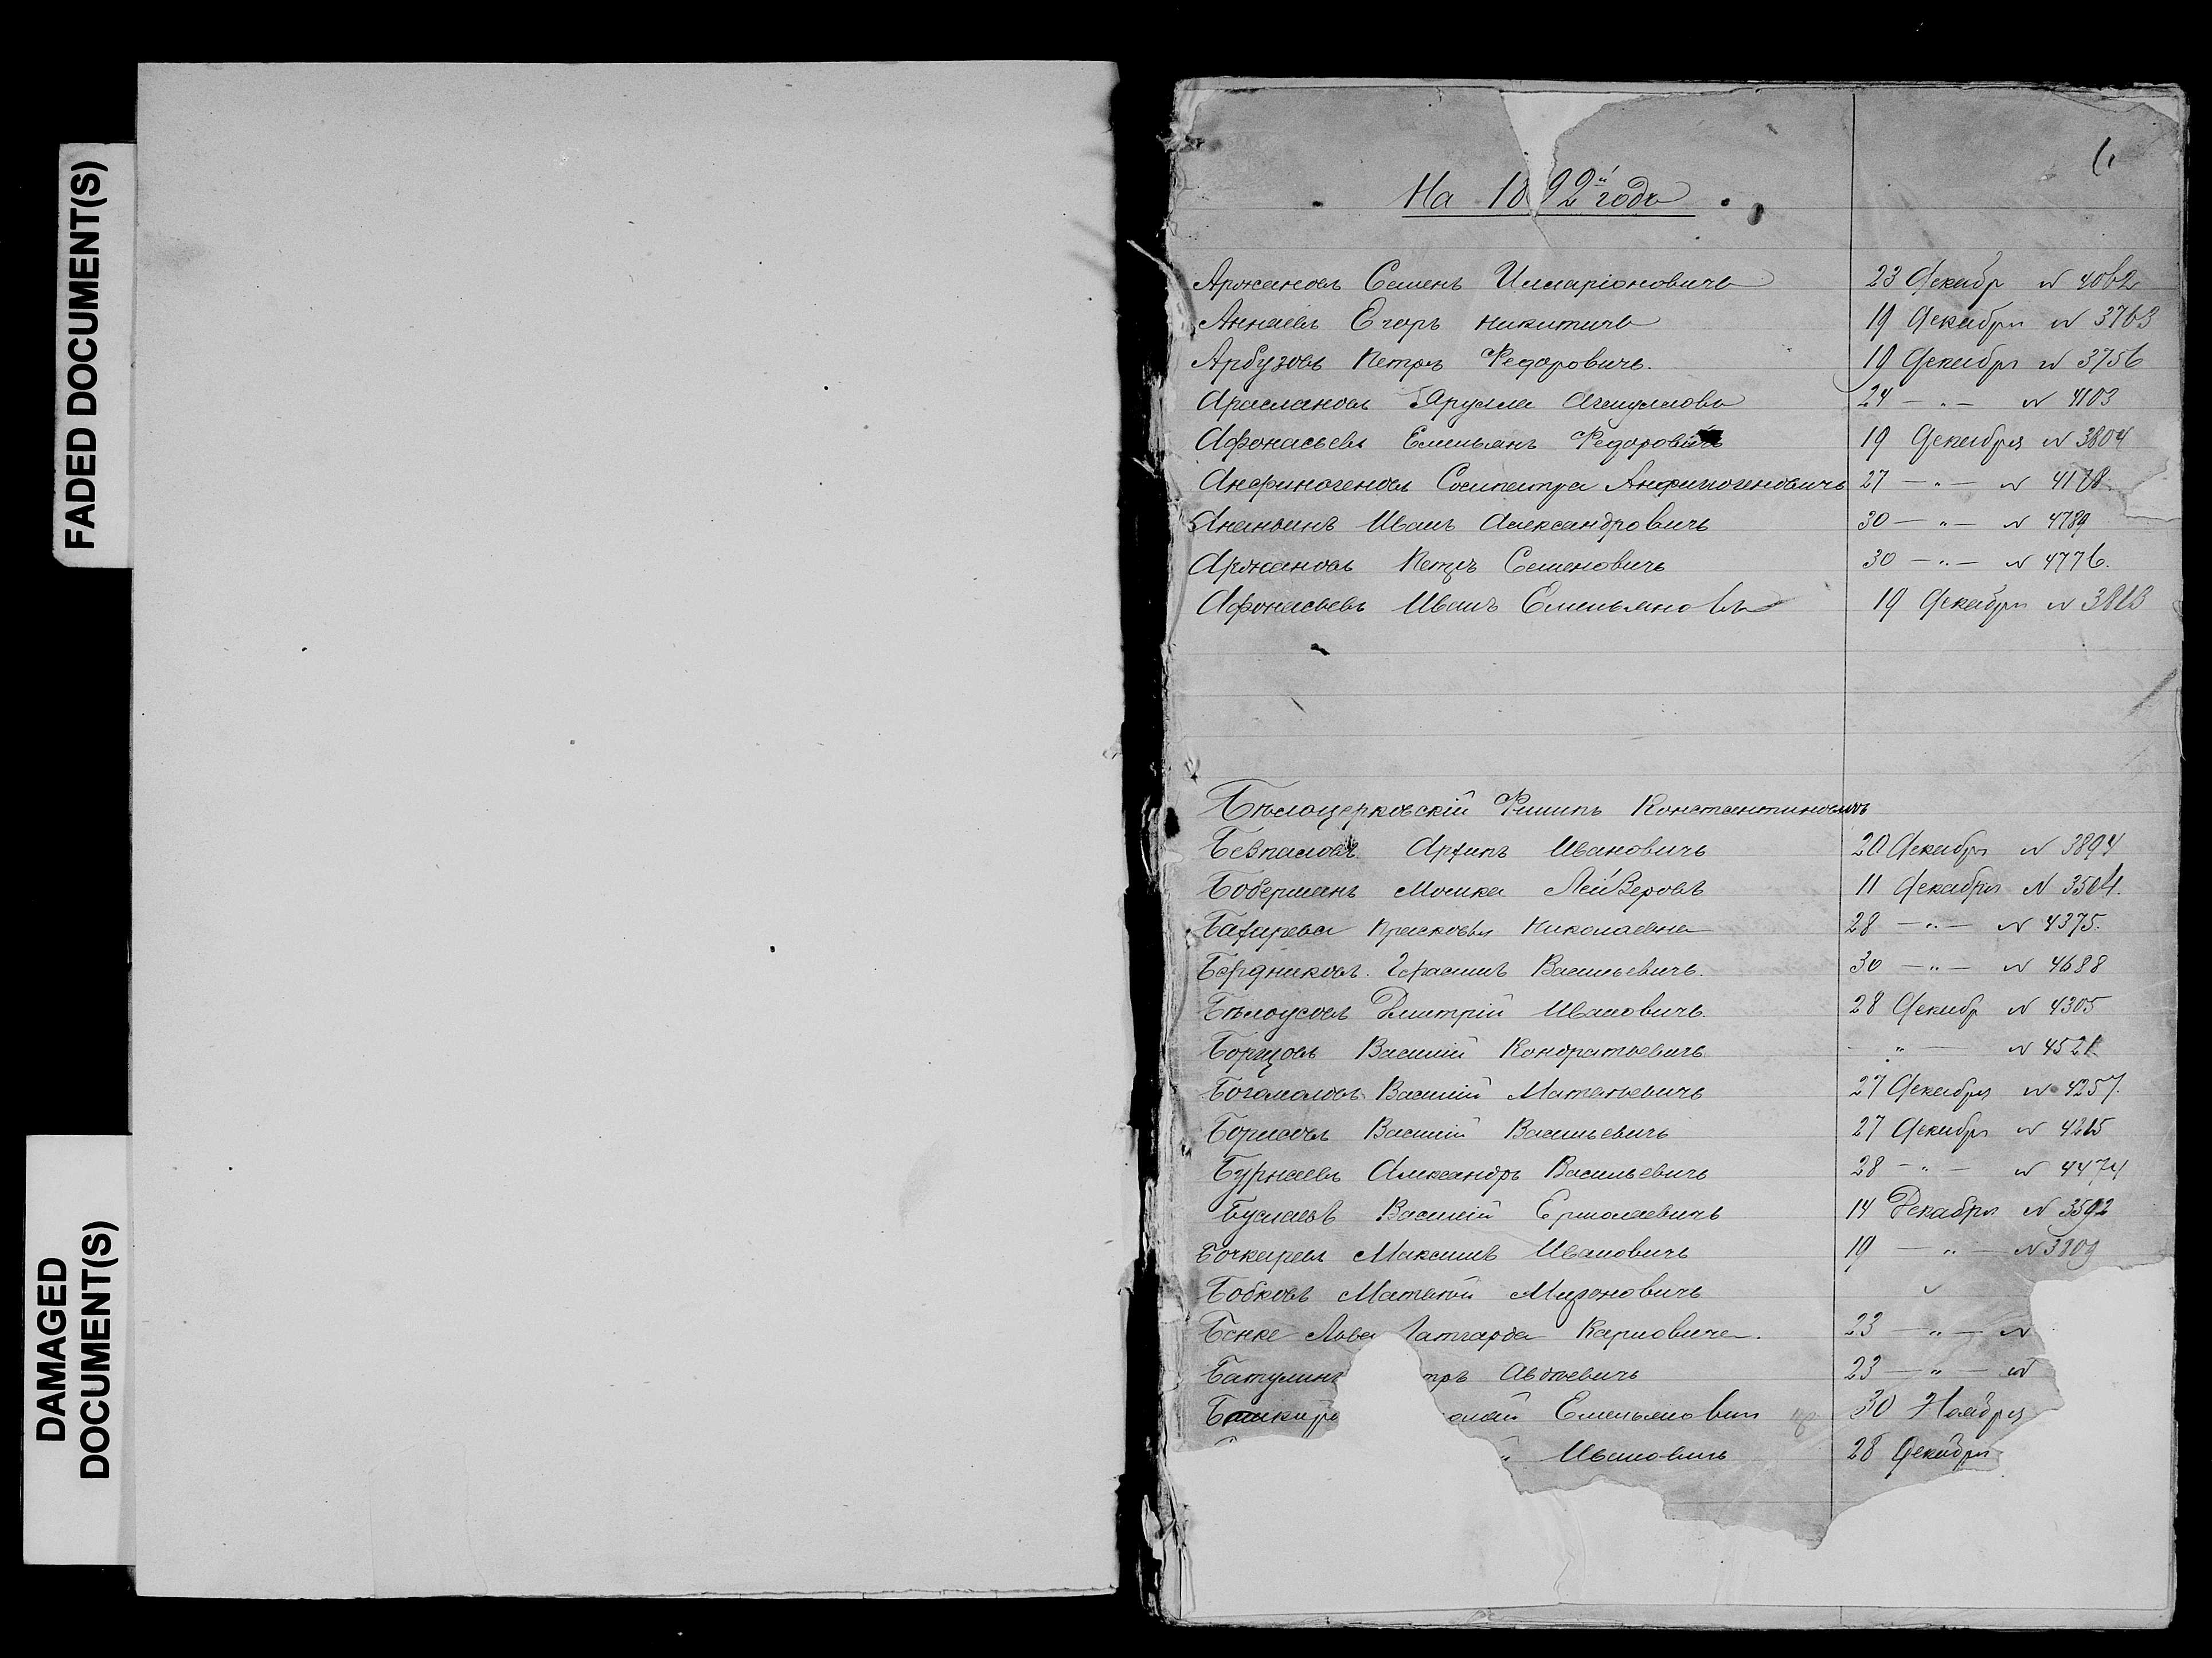 FADED DOCUMENT(S)
DAMAGED
DOCUMENT(S)
На 1892й годъ
Аржановъ Семенъ Илларіоновичъ 23 Декабр № 4062
Аннаевъ Егоръ Никитичъ 19 Декабря № 3763
Арбузовъ Петръ Федоровичъ. 19 Декабря № 3756
Араслановъ Ярулла 24 — „ — № 4103
Афонасьевъ Емельянъ Федоровичъ 19 Декабря № 3804
Анфиногеновъ Сосипатра Анфиногеновичъ 27 — „ — № 4178
Ананьинъ Иванъ Александровичъ 30 — „ — № 4789
Аржановъ Петръ Семеновичъ 30 — „ — № 4776.
Афонасьевъ Иванъ Емельяновъ 19 Декабря № 3813
Бѣлоцерковскій Филипъ Константиновичъ
Безпаловъ Архипъ Ивановичъ 20 Декабря № 3894
Боберманъ Мошка Лейзеровъ 11 Декабря № 3504.
Бахарева Прасковья Николаевна 28 — „ — № 4375.
Бердниковъ Герасимъ Васильевичъ. 30 — „ — № 4688
Бѣлоусовъ Дмитрій Ивановичъ. 28 Декабр № 4305
Борщовъ Василій Кондратьевичъ — „ — № 4521
Богомоловъ Василій Матвѣевичъ 27 Декабря № 4257.
Борисовъ Василій Васильевичъ 27 Декабря № 4215
Бурнаевъ Александръ Васильевичъ 28 — „ — № 4474
Буслаевъ Василій Ермолаевичъ 14 Декабря № 3592
Бочкаревъ Максимъ Ивановичъ 19 — „ — № 3809
Бобковъ Матвѣй Мироновичъ „
Бенке Льва Карловича. 23 — „ — №
Батулинъ тръ Авдѣевичъ 23 — „ — №
Башкиро олай Емельянович 30 Ноября
й Ивановичъ 28 Декабря